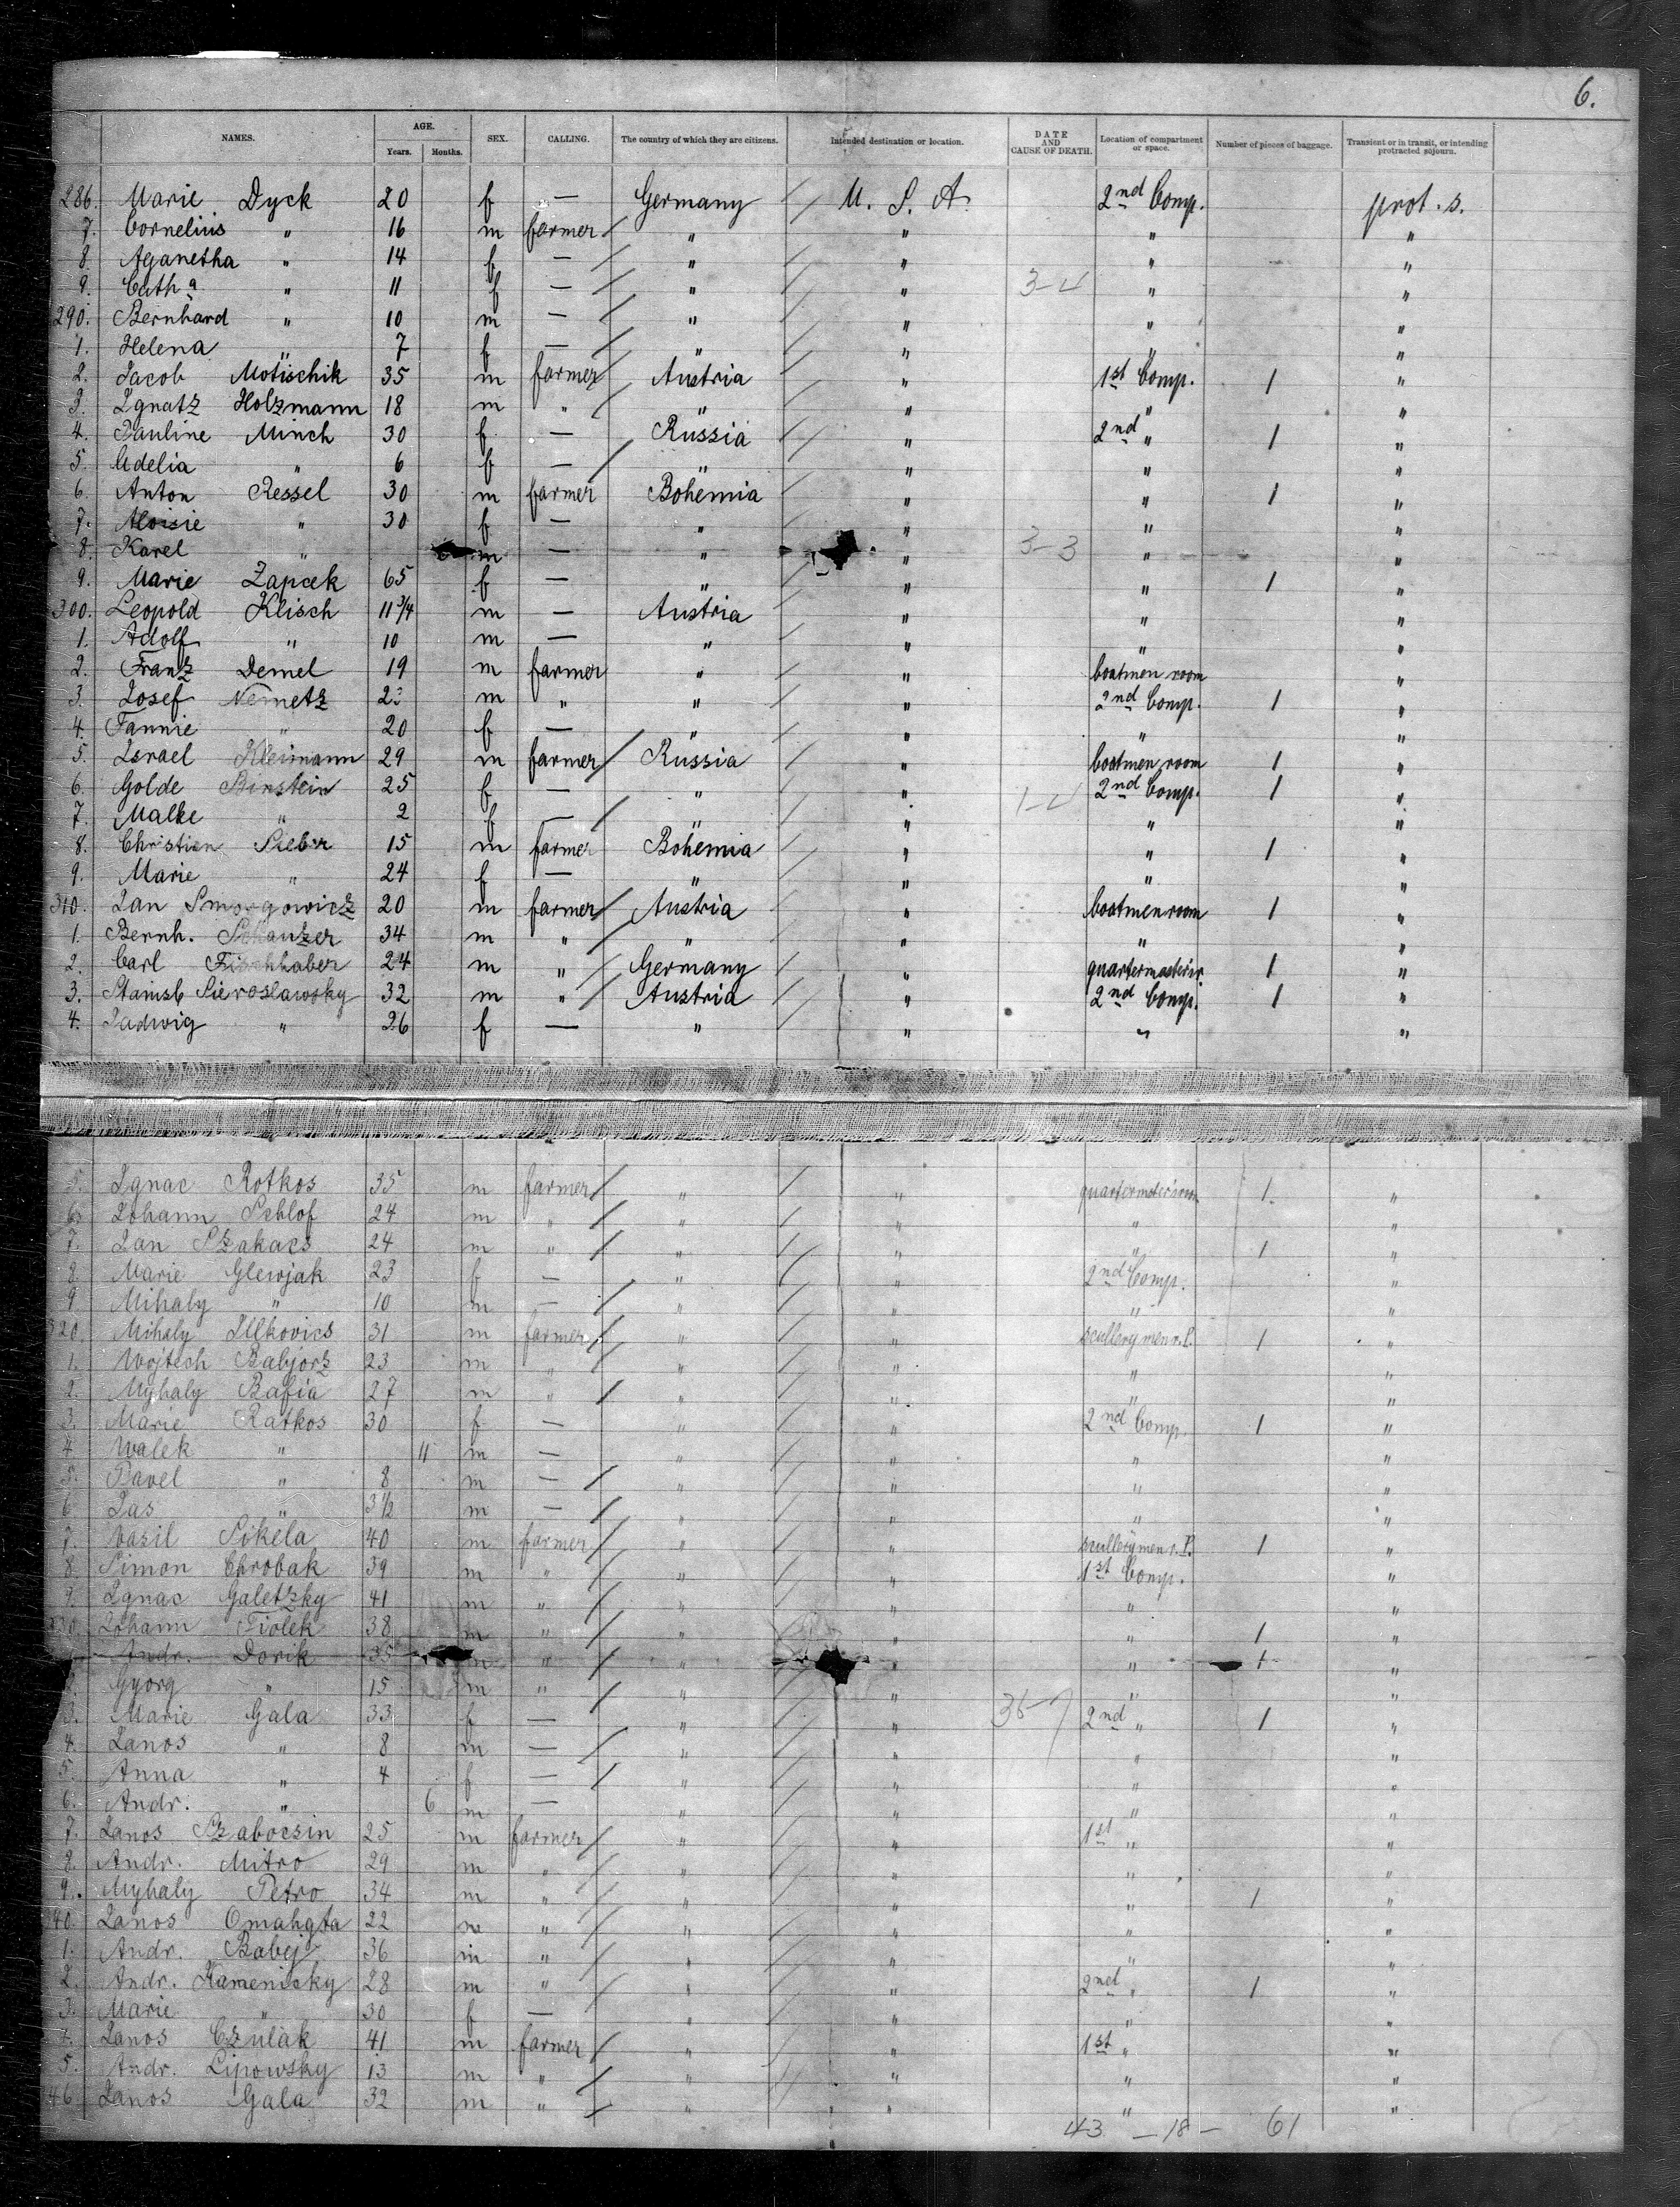 6.
NAMES. AGE. SEX. CALLING. The country of which they are citizens. Intended destination or location. DATE AND CAUSE OF DEATH. Location of compartment or space. Number of pieces of baggage. Transient or in transit, or intending protracted sojourn.
Years. Months.
286. Marie Dyck 20 f — Germany / U. S. A. 2nd Comp. prot. s.
7. Cornelius " 16 m farmer / " / " " "
8. Aganetha " 14 f — / " / " " "
9. Cath a " 11 f — / " / " 3-4 " "
290. Bernhard " 10 m — / " / " " "
1. Helena " 7 f — / " / " " "
2. Jacob Motischik 35 m farmer / Austria / " 1st Comp. 1 "
3. Ignatz Holzmann 18 m " / " / " " "
4. Pauline Minch 30 f — Russia / " 2nd " 1 "
5. Adelia " 6 f — / " / " " "
6. Anton Ressel 30 m farmer Bohemia / " " 1 "
7. Aloisie " 30 f — " / " " "
8. Karel " m — " / " 3-3 " "
9. Marie Zapcek 65 f — " / " " 1 "
300. Leopold Klisch 11 3/4 m — Austria / " " "
1. Adolf " 10 m — " / " " "
2. Franz Demel 19 m farmer " / " boatmen room "
3. Josef Nemetz 23 m " " / " 2nd Comp. 1 "
4. Fannie " 20 f — " / " " "
5. Israel Kleimann 29 m farmer / Russia / " boatmen room 1 "
6. Golde Binstein 25 f — " / " 1-4 2nd Comp. 1 "
7. Malke " 2 f — / " / " " "
8. Christian Sieber 15 m farmer Bohemia / " " 1 "
9. Marie " 24 f — " / " " "
310. Jan Smorgowicz 20 m farmer / Austria / " boatmen room 1 "
1. Bernh. Schanzer 34 m " / " / " " "
2. Carl Fischhaber 24 m " / Germany / " quartermasterr. 1 "
3. Stanisl Sieroslawsky 32 m " / Austria / " 2nd Comp. 1 "
4. Jadwig " 26 f — " / " " "
5. Ignac Rotkos 35 m farmer / " / " 1. "
6. Johann Schlof 24 m " / " / " " "
7. Jan Szakacs 24 m " / " / " " 1 "
8. Marie Glewjak 23 f — " / " 2nd Comp. "
9. Mihaly " 10 m — / " / " " "
320. Mihaly Illkovics 31 m farmer / " / " scullery men r. P. 1 "
1. Wojtech Babjorz 23 m " / " / " " "
2. Myhaly Bafia 27 m " / " / " " "
3. Marie Ratkos 30 f — " / " 2nd Comp. 1 "
4. Walek " 11 m — " / " " "
5. Pavel " 8 m — / " / " " "
6. Jas " 3 1/2 m — / " / " " "
7. Vasil Sikela 40 m farmer / " / " scullery men r. P. 1 "
8. Simon Chrobak 39 m " / " / " 1st Comp. "
9. Ignac Galetzky 41 m " / " / " " "
330. Johann Fiolek 38 m " / " / " " 1 "
1. Andr. Dorik 35 m " / " / " " 1 "
2. Gyorg " 15 m " / " / " " "
3. Marie Gala 33 f — " / " 2nd " 1 "
4. Janos " 8 m — / " / " " "
5. Anna " 4 f — / " / " " "
6. Andr. " 6 m — " / " " "
7. Janos Szabocsin 25 m farmer / " / " 1st " "
8. Andr. Mitro 29 m " / " / " " "
9. Myhaly Petro 34 m " / " / " " 1 "
340. Janos Omahgta 22 m " / " / " " "
1. Andr. Babej 36 m " / " / " " "
2. Andr. Kamenisky 28 m " / " / " 2nd " 1 "
3. Marie " 30 f — " / " " "
4. Janos Czulak 41 m farmer / " / " 1st " "
5. Andr. Lipowsky 13 m " / " / " " "
46. Janos Gala 32 m " / " / " " "
43 — 18 — 61